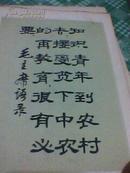 知识青年到农村
去接受贫下中农
的再教育很有必
要
毛主席语录